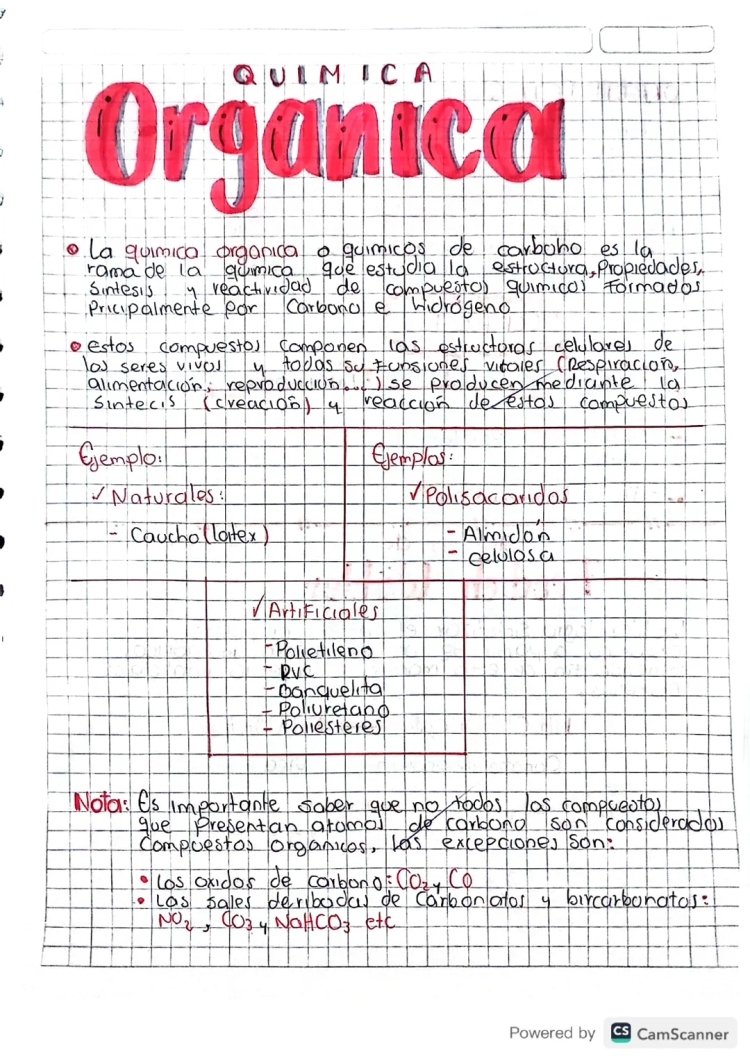 QUIMICA
Organica
La quimica organica o quimicos de carbono es la
rama de la quimica que estudia la estructura, Propiedades,
Sintesis y reactividad de compuestos quimicos Formados
Pricipalmente por Carbono e hidrógeno
estos compuestos componen las estructuras celulares de
los seres vivos y todas su Funsiones vitales (Respiración,
alimentación, reproducción...) se producen mediante la
Sintecis (creación) y reacción de estos compuestos
Ejemplo:
✓ Naturales:
- Caucho (latex)
Ejemplos:
✓ Polisacaridos
- Almidón
- celulosa
✓ Artificiales
- Polietileno
- PVC
- banquelita
- Poliuretano
- Poliesteres
Nota: Es importante saber que no todos los compuestos
que Presentan atomos de carbono son considerados
Compuestos organicos, las excepciones son:
• Los oxidos de carbono: CO₂ y CO
• Las sales deribadas de Carbonatos y bircarbonatos:
NO₂, CO₃ y NaHCO₃ etc
Powered by CS CamScanner